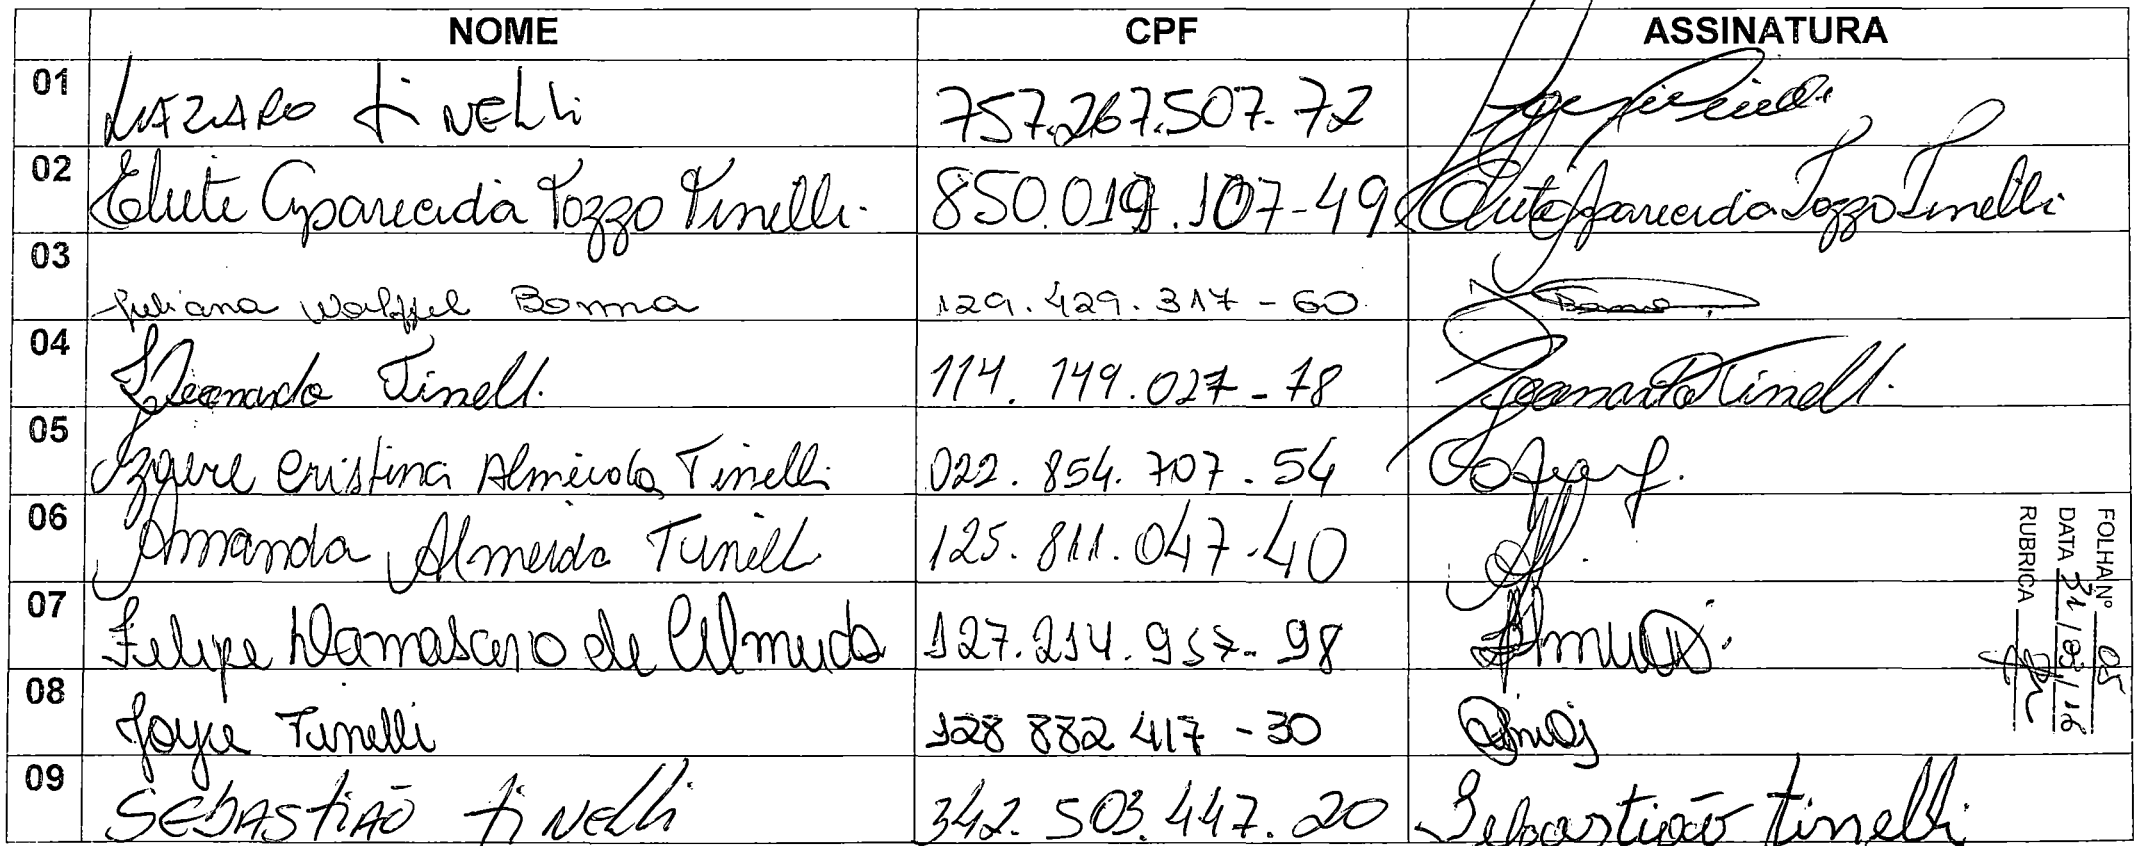 NOME CPF ASSINATURA
01 LAZARO tiNELLi 757.267.507.72
02 Elute Aparecida Tozzo Tinelli. 850.019.107-49 Aparecida Tozzo Tinelli
03 Juliana Bonna 129.429.317-60
04 Leonardo Tinelli. 114.149.027-78 Leonardo Tinelli.
05 Cristina Almeida Tinelli 022.854.707.54
06 Amanda Almeida Tinelli 125.811.047-40
07 Felipe Damasceno de Almeida 127.214.957-98
08 Joyce Tinelli 128 882 417-30
09 SEBAStiÃO tiNELLi 342.503.447.20 Sebastião tinelli
FOLHA Nº 05
DATA 31/03/16
RUBRICA